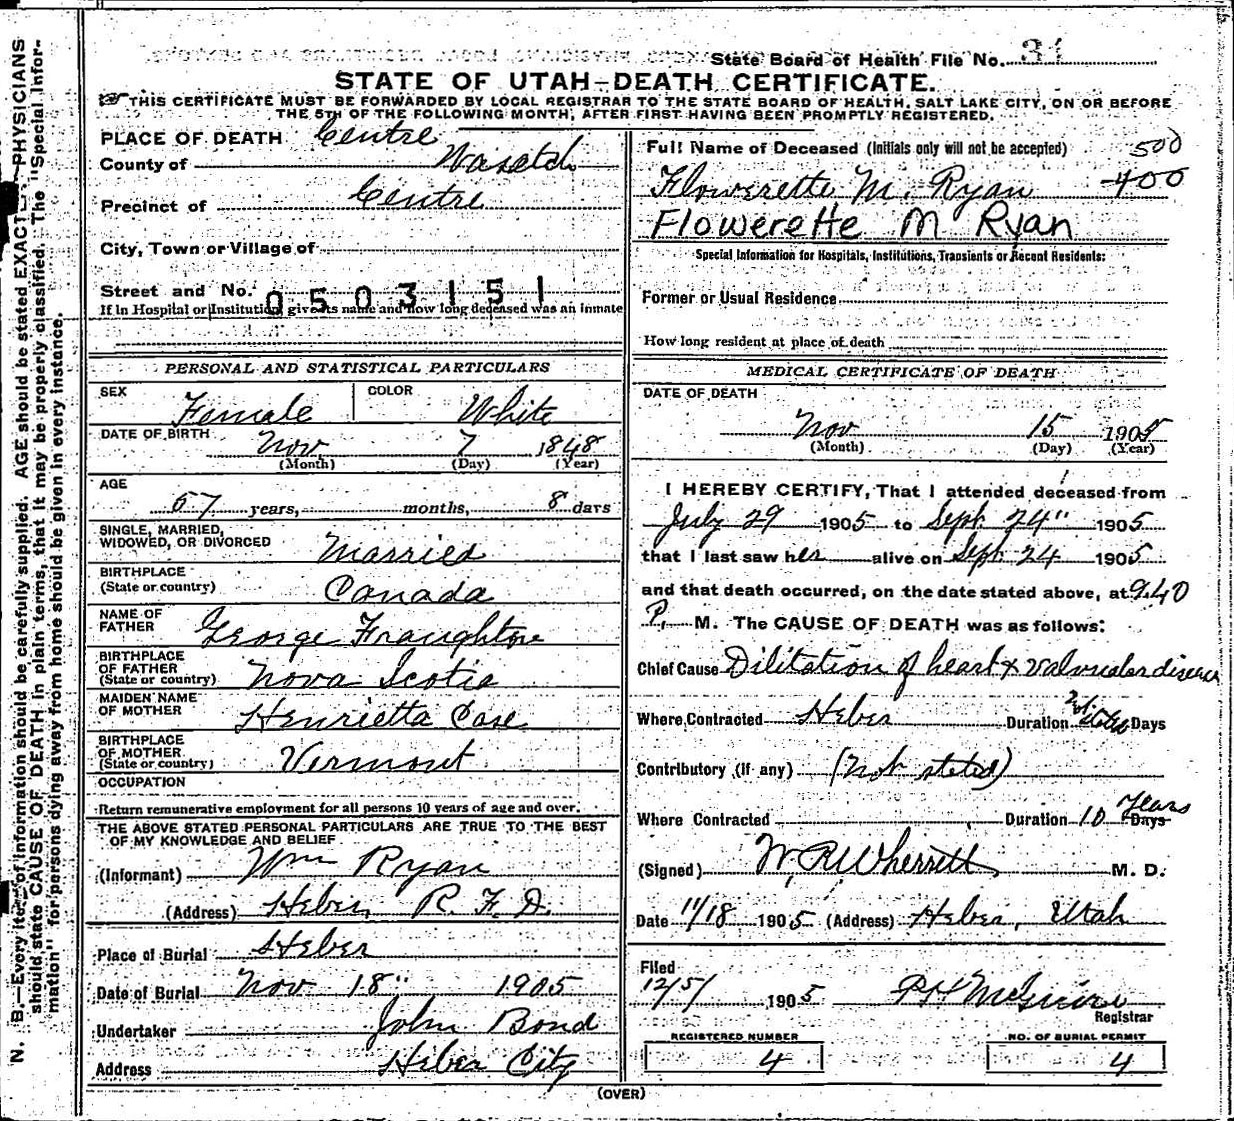 State Board of Health File No. 31
STATE OF UTAH—DEATH CERTIFICATE.
THIS CERTIFICATE MUST BE FORWARDED BY LOCAL REGISTRAR TO THE STATE BOARD OF HEALTH, SALT LAKE CITY, ON OR BEFORE
THE 5TH OF THE FOLLOWING MONTH, AFTER FIRST HAVING BEEN PROMPTLY REGISTERED.
PLACE OF DEATH Centre
County of Wasatch
Precinct of Centre
City, Town or Village of
Street and No.
0503151
If in Hospital or Institution, give its name and how long deceased was an inmate
PERSONAL AND STATISTICAL PARTICULARS
SEX Female COLOR White
DATE OF BIRTH Nov 7 1848
(Month) (Day) (Year)
AGE
57 years, months, 8 days
SINGLE, MARRIED,
WIDOWED, OR DIVORCED Married
BIRTHPLACE
(State or country) Canada
NAME OF
FATHER George Fraughton
BIRTHPLACE
OF FATHER
(State or country) Nova Scotia
MAIDEN NAME
OF MOTHER Henrietta Case
BIRTHPLACE
OF MOTHER
(State or country) Vermont
OCCUPATION
Return remunerative employment for all persons 10 years of age and over.
THE ABOVE STATED PERSONAL PARTICULARS ARE TRUE TO THE BEST
OF MY KNOWLEDGE AND BELIEF
(Informant) Wm Ryan
(Address) Heber, R. F. D.
Place of Burial Heber
Date of Burial Nov 18" 1905
Undertaker John Bond
Address Heber City
Full Name of Deceased (Initials only will not be accepted) 500
Flowerette M. Ryan 400
Flowerette M Ryan
Special Information for Hospitals, Institutions, Transients or Recent Residents:
Former or Usual Residence
How long resident at place of death
MEDICAL CERTIFICATE OF DEATH
DATE OF DEATH
Nov 15 1905
(Month) (Day) (Year)
I HEREBY CERTIFY, That I attended deceased from
July 29 1905 to Sept 24" 1905
that I last saw her alive on Sept 24 1905
and that death occurred, on the date stated above, at 9.40
P. M. The CAUSE OF DEATH was as follows:
Chief Cause Dilitation of heart & valvular disease
Where Contracted Heber Duration Not stated Days
Contributory (if any) (Not stated)
Where Contracted Duration 10 Years Days
(Signed) W. R. Wherritt M. D.
Date 11/18 1905 (Address) Heber, Utah
Filed
12/5/ 1905 McGuire
Registrar
REGISTERED NUMBER
4
NO. OF BURIAL PERMIT
4
(OVER)
N. B.—Every item of information should be carefully supplied. AGE should be stated EXACTLY. PHYSICIANS
should state CAUSE OF DEATH in plain terms, that it may be properly classified. The "Special Infor-
mation" for persons dying away from home should be given in every instance.